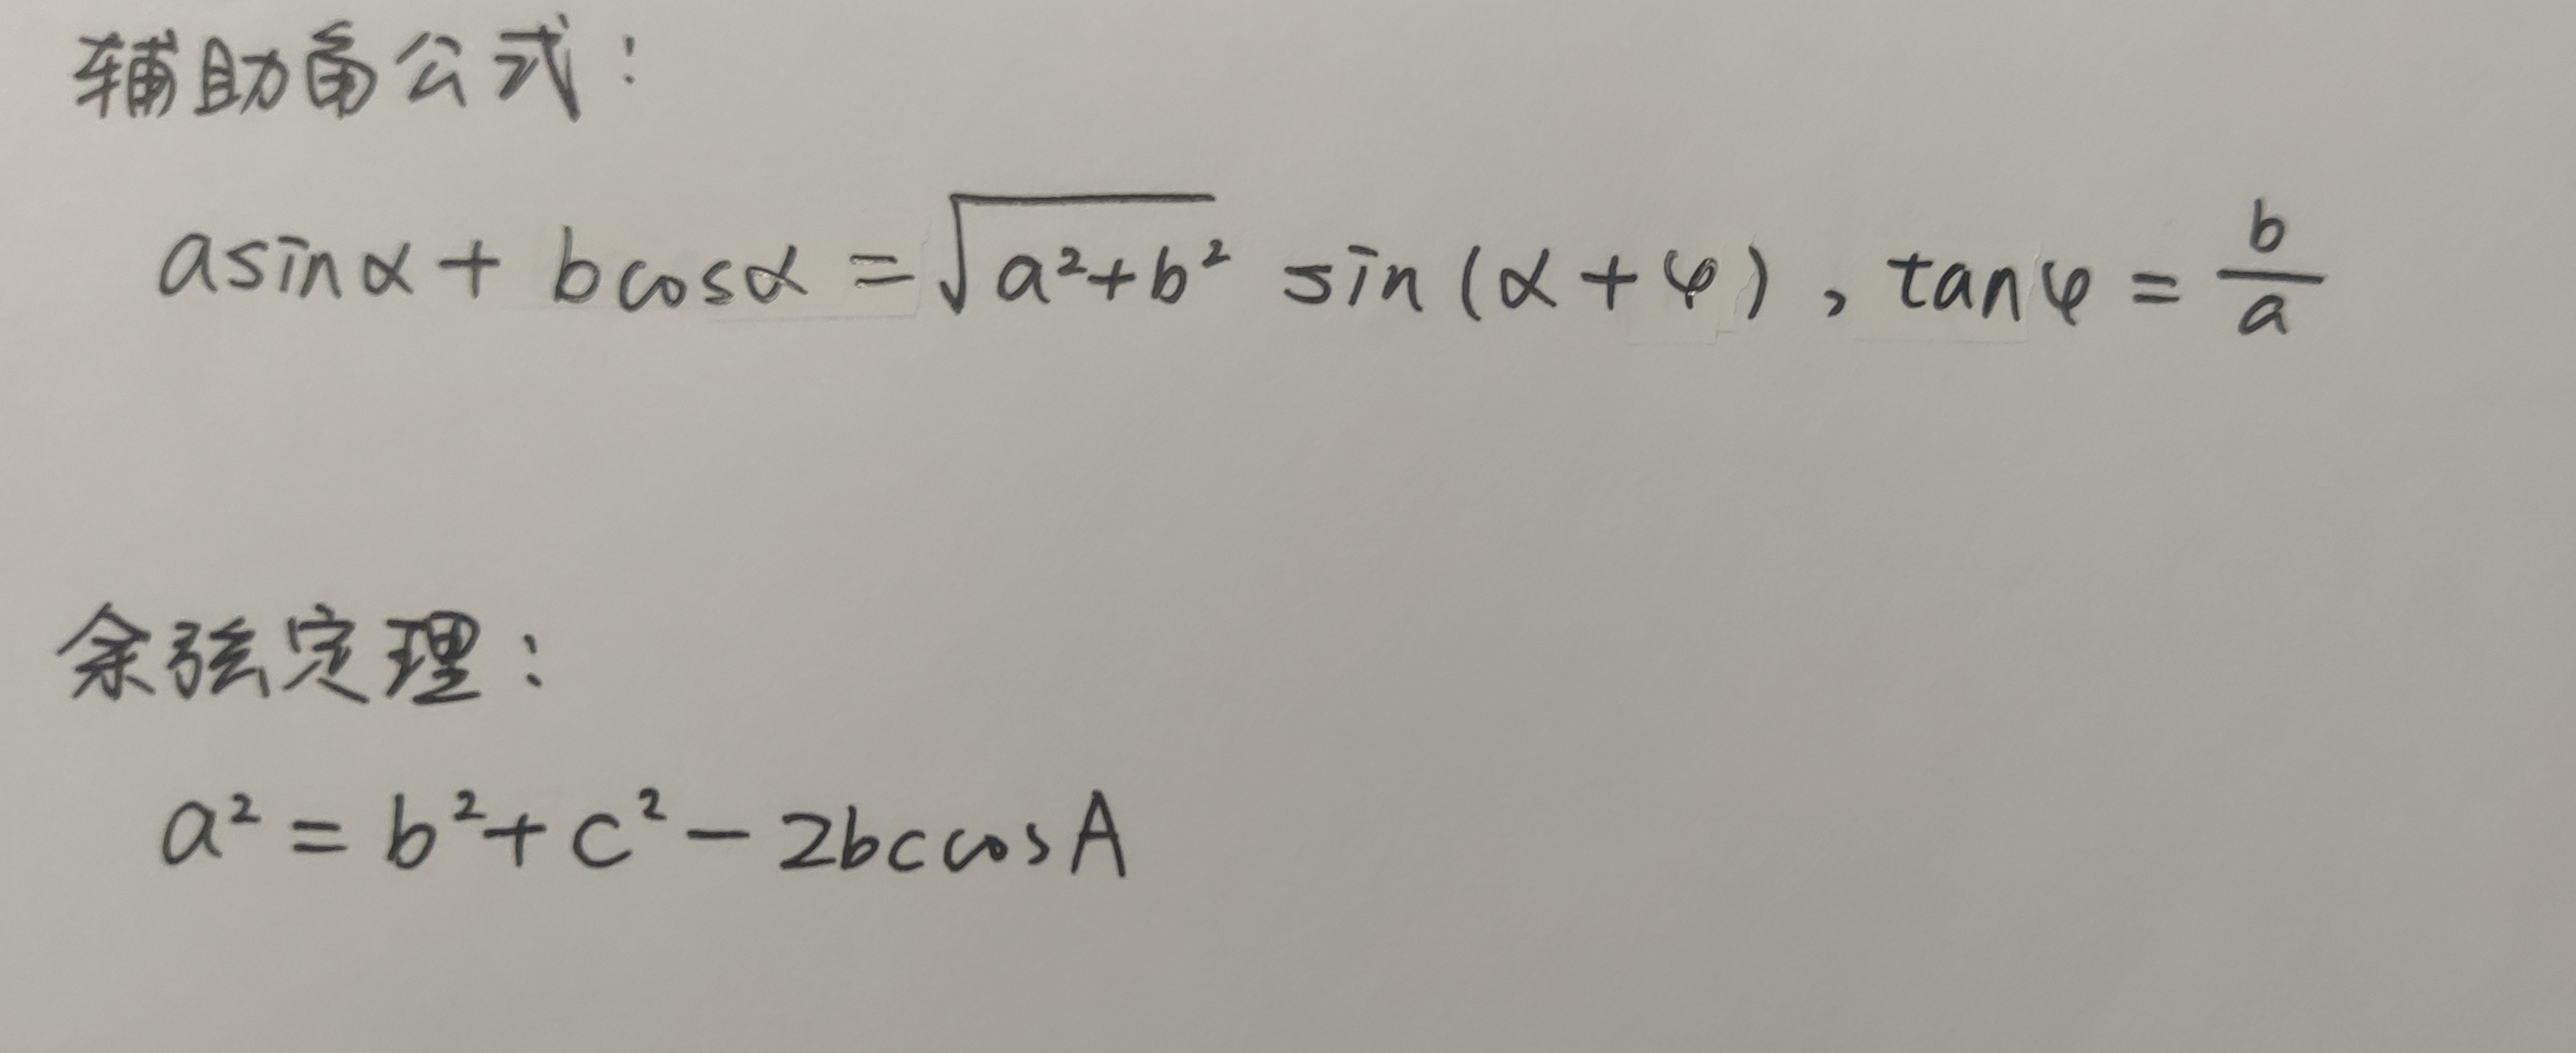 辅助角公式：
asinα + bcosα = √(a²+b²) sin(α+φ), tanφ = b/a
余弦定理：
a² = b² + c² - 2bccosA